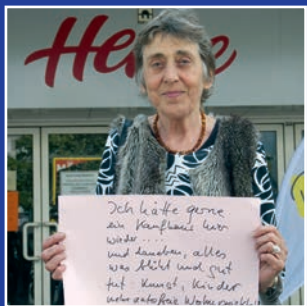 He
e
Ich hätte gerne
ein Kaufhaus hier
wieder ....
und daneben, alles
was blüht und gut
tut: Kunst, Kinder